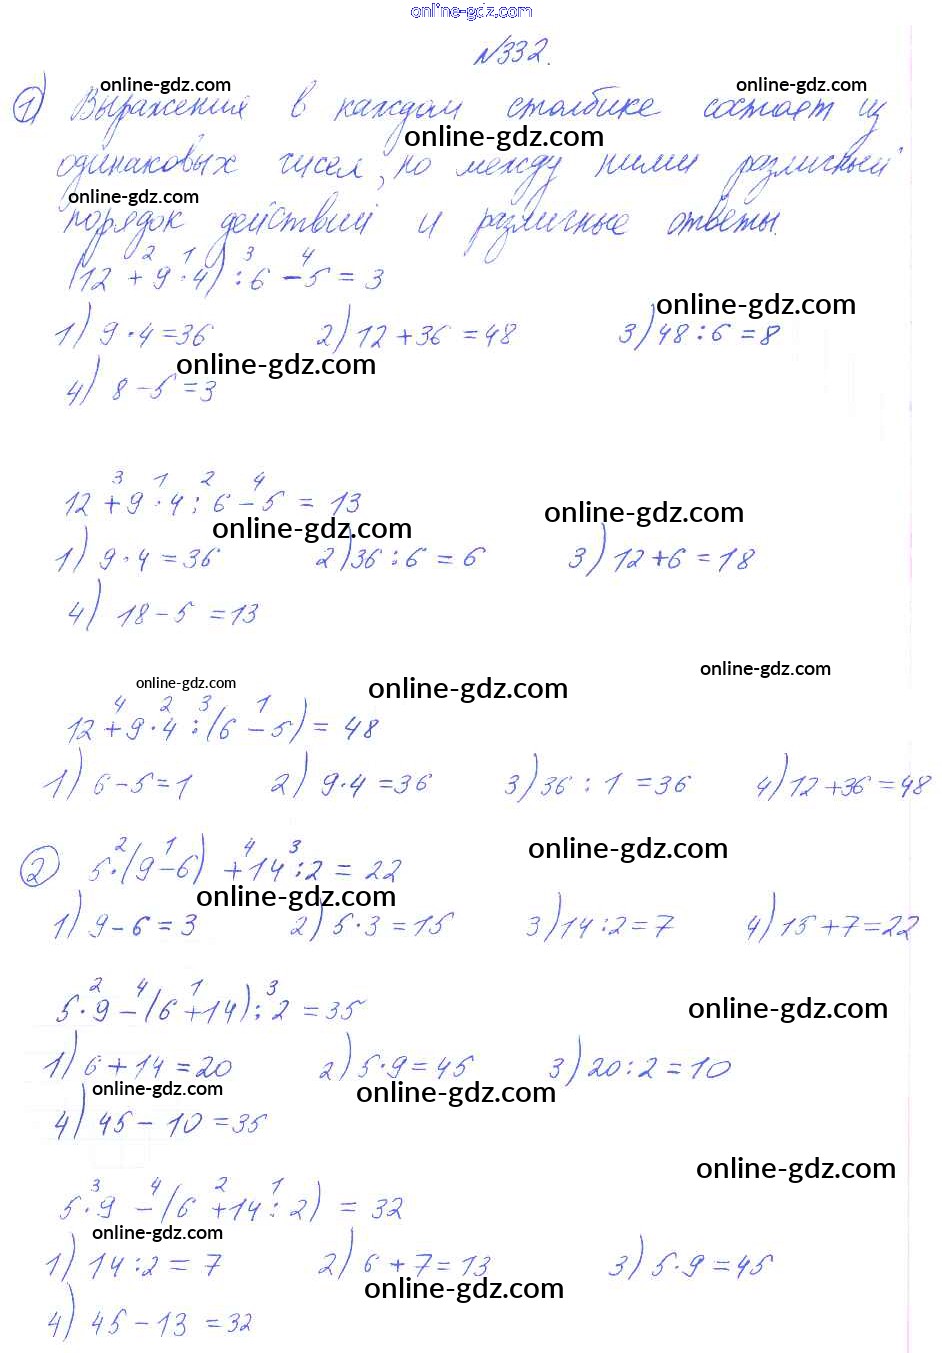 online-gdz.com
№332.
online-gdz.com online-gdz.com
1) Выражения в каждом столбике состоят из
online-gdz.com
одинаковых чисел, но между ними различный
online-gdz.com
порядок действий и различные ответы.
2 1 3 4
(12 + 9 · 4) : 6 - 5 = 3
online-gdz.com
1) 9 · 4 = 36 2) 12 + 36 = 48 3) 48 : 6 = 8
online-gdz.com
4) 8 - 5 = 3
3 1 2 4
12 + 9 · 4 : 6 - 5 = 13
online-gdz.com online-gdz.com
1) 9 · 4 = 36 2) 36 : 6 = 6 3) 12 + 6 = 18
4) 18 - 5 = 13
online-gdz.com online-gdz.com online-gdz.com
4 2 3 1
12 + 9 · 4 : (6 - 5) = 48
1) 6 - 5 = 1 2) 9 · 4 = 36 3) 36 : 1 = 36 4) 12 + 36 = 48
2 1 4 3
online-gdz.com
2) 5 · (9 - 6) + 14 : 2 = 22
online-gdz.com
1) 9 - 6 = 3 2) 5 · 3 = 15 3) 14 : 2 = 7 4) 15 + 7 = 22
2 4 1 3
5 · 9 - (6 + 14) : 2 = 35
online-gdz.com
1) 6 + 14 = 20 2) 5 · 9 = 45 3) 20 : 2 = 10
online-gdz.com online-gdz.com
4) 45 - 10 = 35
online-gdz.com
3 4 2 1
5 · 9 - (6 + 14 : 2) = 32
online-gdz.com
1) 14 : 2 = 7 2) 6 + 7 = 13 3) 5 · 9 = 45
online-gdz.com
4) 45 - 13 = 32